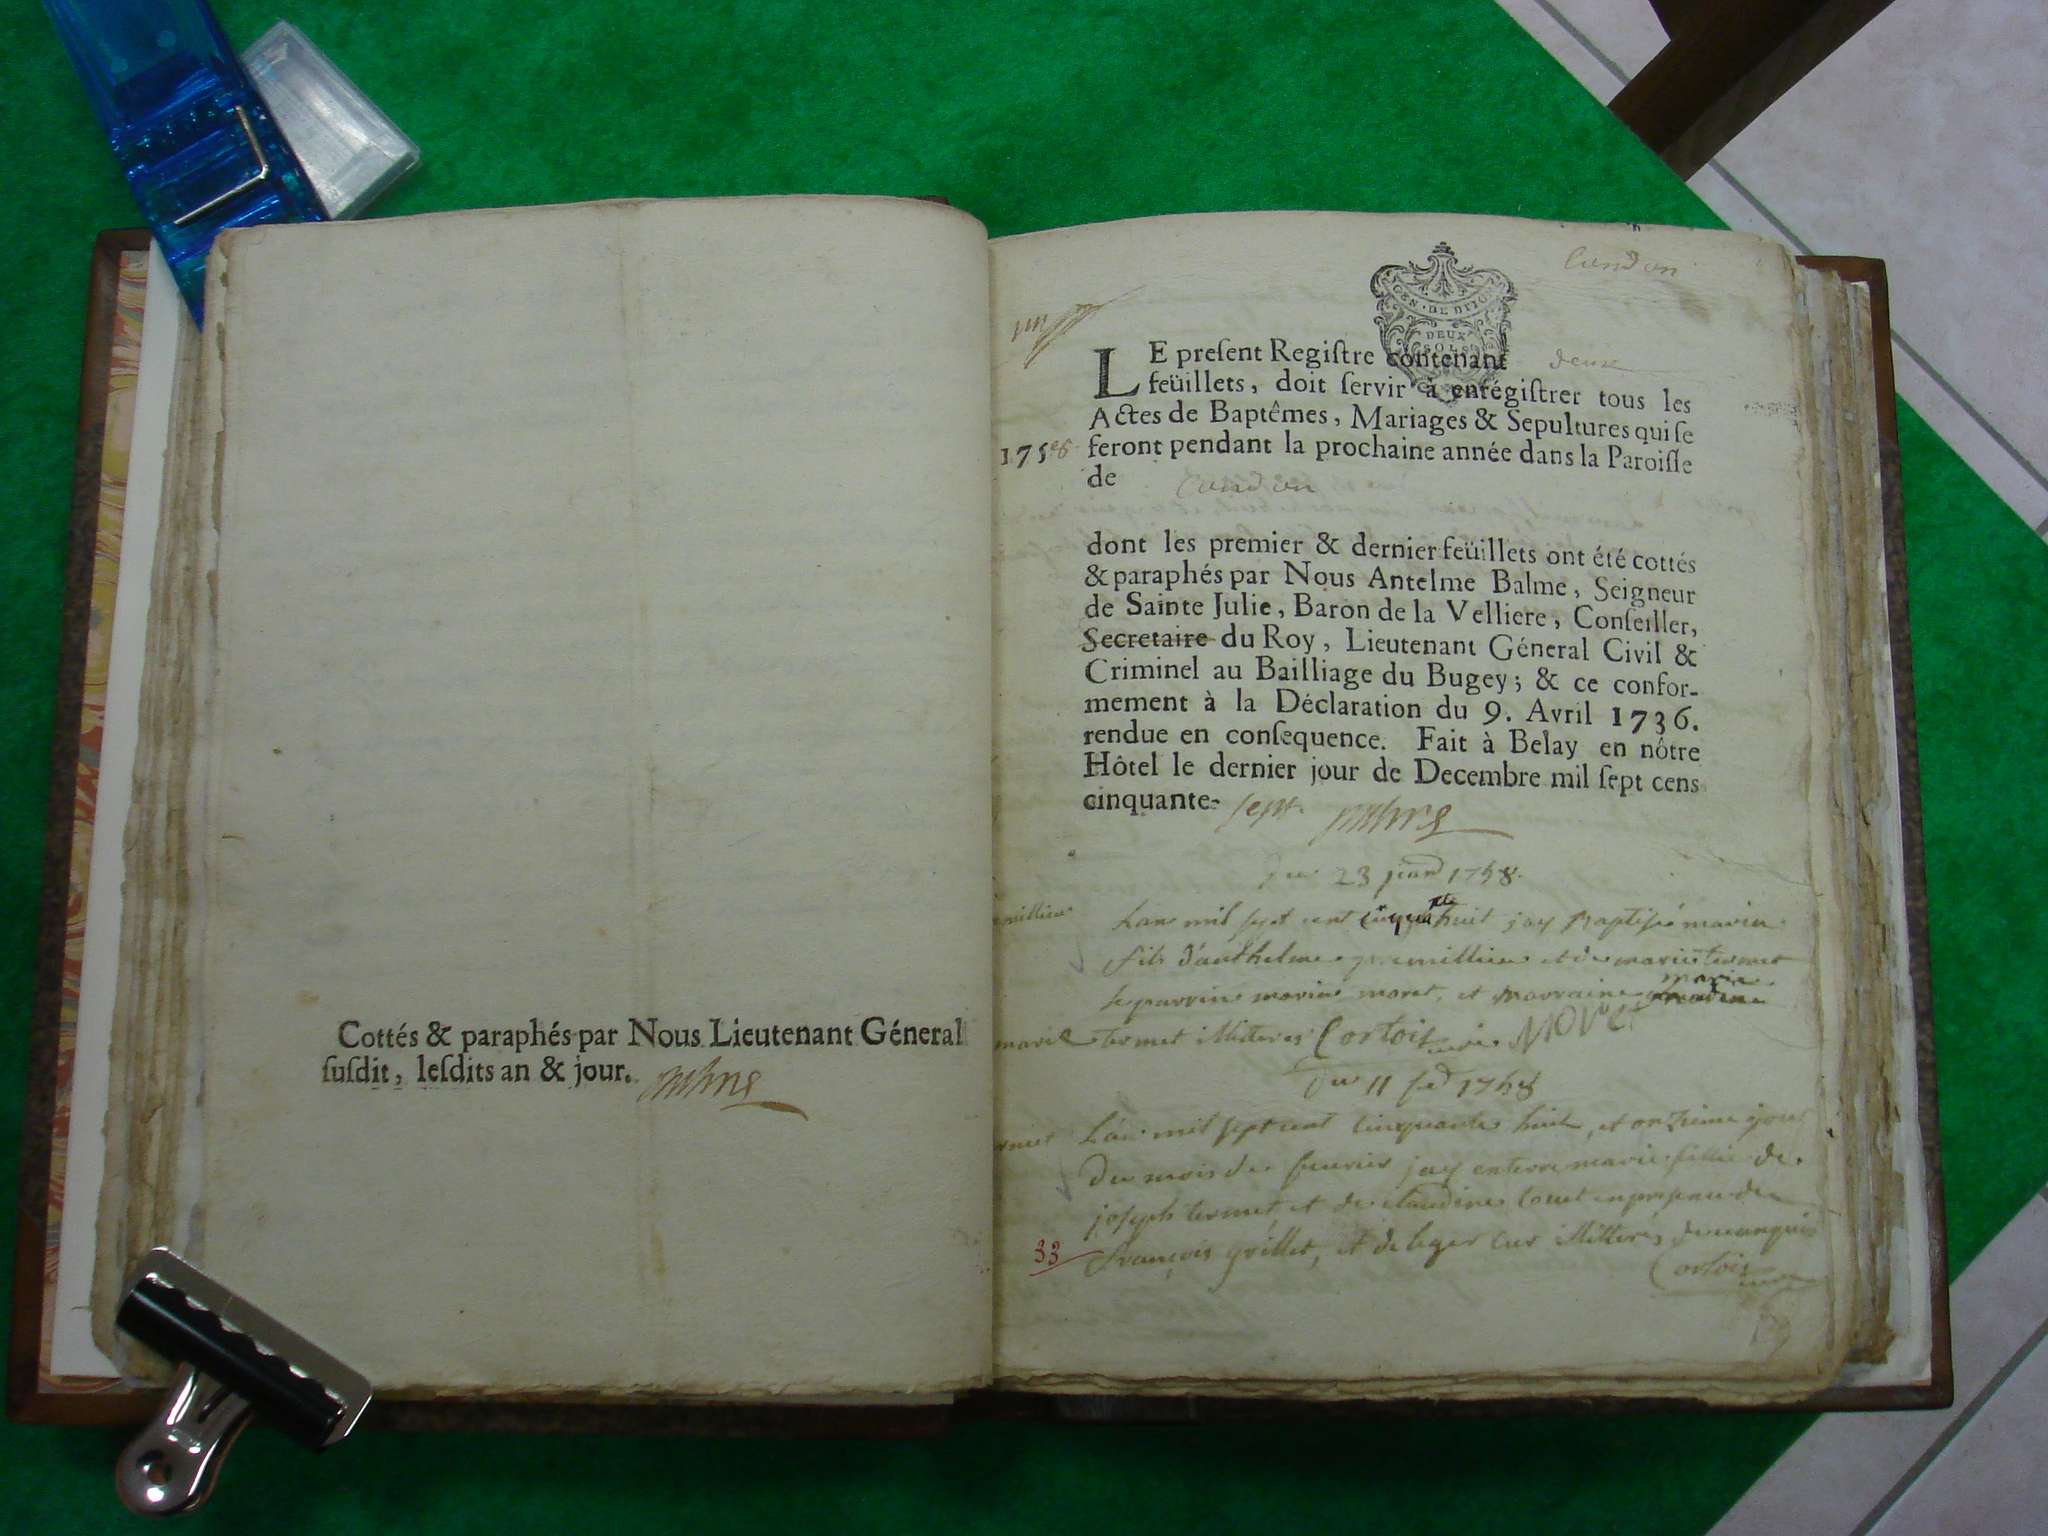 Cottés & paraphés par Nous Lieutenant Géneral
suſdit, leſdits an & jour.
Condon
GEN. DE DIION
DEUX
SOLS
LE preſent Regiſtre contenant deux
feüillets, doit ſervir à enrégiſtrer tous les
Actes de Baptêmes, Mariages & Sepultures qui ſe
1758 feront pendant la prochaine année dans la Paroiſſe
de Condon
dont les premier & dernier feüillets ont été cottés
& paraphés par Nous Antelme Balme, Seigneur
de Sainte Julie, Baron de la Velliere, Conſeiller,
Secretaire du Roy, Lieutenant Géneral Civil &
Criminel au Bailliage du Bugey; & ce confor-
mement à la Déclaration du 9. Avril 1736.
rendue en conſequence. Fait à Belay en nôtre
Hôtel le dernier jour de Decembre mil ſept cens
cinquante- sept
Du 23 janv 1758
Lan mil sept cent cinquante huit jay Baptisé marin
fils d'anthelme premillieu et de marie termet
le parrin marin moret, et marraine marie
termet illitteres Cortois curé Moret
Du 11 fev 1758
Lan mil sept cent cinquante huit, et onzieme jour
Du mois de fevrier jay enterre marie fille de
joseph termet et de claudine en presence de
33 François grillet, et de leger illitterés de enquis
Cortois curé